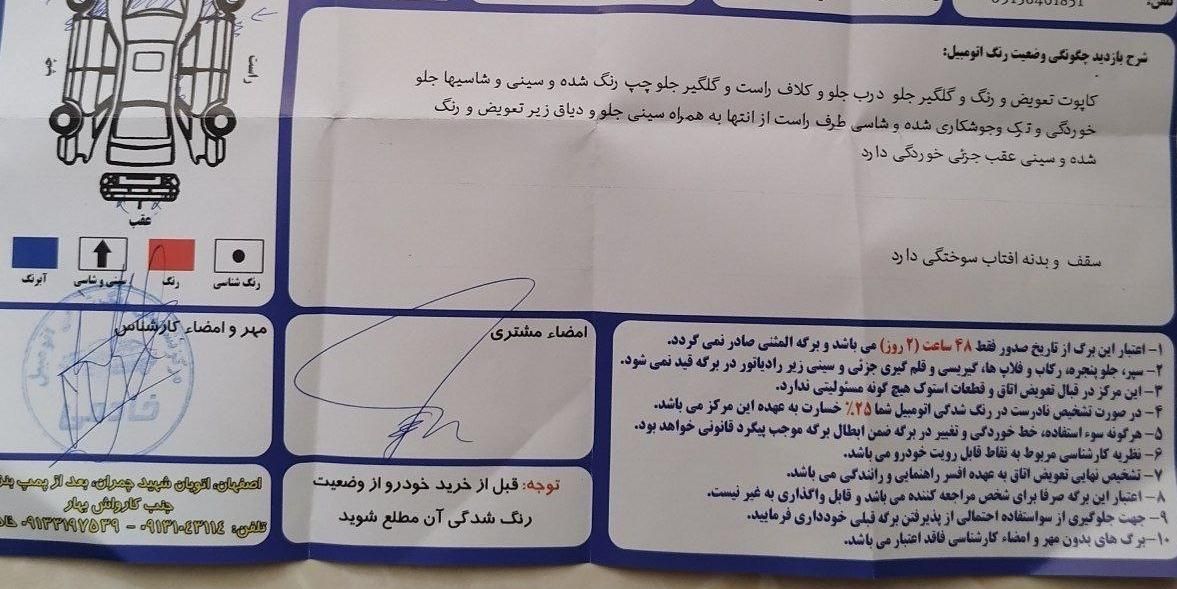 تلفن:
شرح بازدید چگونگی وضعیت رنگ اتومبیل:
کاپوت تعویض و رنگ و گلگیر جلو درب جلو و کلاف راست و گلگیر جلو چپ رنگ شده و سینی و شاسیها جلو
خوردگی و ترک وجوشکاری شده و شاسی طرف راست از انتها به همراه سینی جلو و دیاق زیر تعویض و رنگ
شده و سینی عقب جزئی خوردگی دارد
سقف و بدنه افتاب سوختگی دارد
راست
چپ
عقب
رنگ شناسی
رنگ
سینی و شاسی
آبرنگ
مهر و امضاء کارشناس
امضاء مشتری
۱- اعتبار این برگ از تاریخ صدور فقط ۴۸ ساعت (۲ روز) می باشد و برگه المثنی صادر نمی گردد.
۲- سپر، جلو پنجره، رکاب و فلاپ ها، گیریسی و قلم گیری جزئی و سینی زیر رادیاتور در برگه قید نمی شود.
۳- این مرکز در قبال تعویض اتاق و قطعات استوک هیچ گونه مسئولیتی ندارد.
۴- در صورت تشخیص نادرست در رنگ شدگی اتومبیل شما ۲۵٪ خسارت به عهده این مرکز می باشد.
۵- هرگونه سوء استفاده، خط خوردگی و تغییر در برگه ضمن ابطال برگه موجب پیگرد قانونی خواهد بود.
۶- نظریه کارشناسی مربوط به نقاط قابل رویت خودرو می باشد.
۷- تشخیص نهایی تعویض اتاق به عهده افسر راهنمایی و رانندگی می باشد.
۸- اعتبار این برگه صرفا برای شخص مراجعه کننده می باشد و قابل واگذاری به غیر نیست.
۹- جهت جلوگیری از سواستفاده احتمالی از پذیرفتن برگه قبلی خودداری فرمایید.
۱۰- برگ های بدون مهر و امضاء کارشناسی فاقد اعتبار می باشد.
توجه: قبل از خرید خودرو از وضعیت
رنگ شدگی آن مطلع شوید
اصفهان، اتوبان شهید چمران، بعد از پمپ بنز
جنب کارواش بهار
تلفن: ۰۹۱۳۱۰۴۳۱۱۴ - ۰۹۱۳۳۱۹۷۵۳۹ خاد